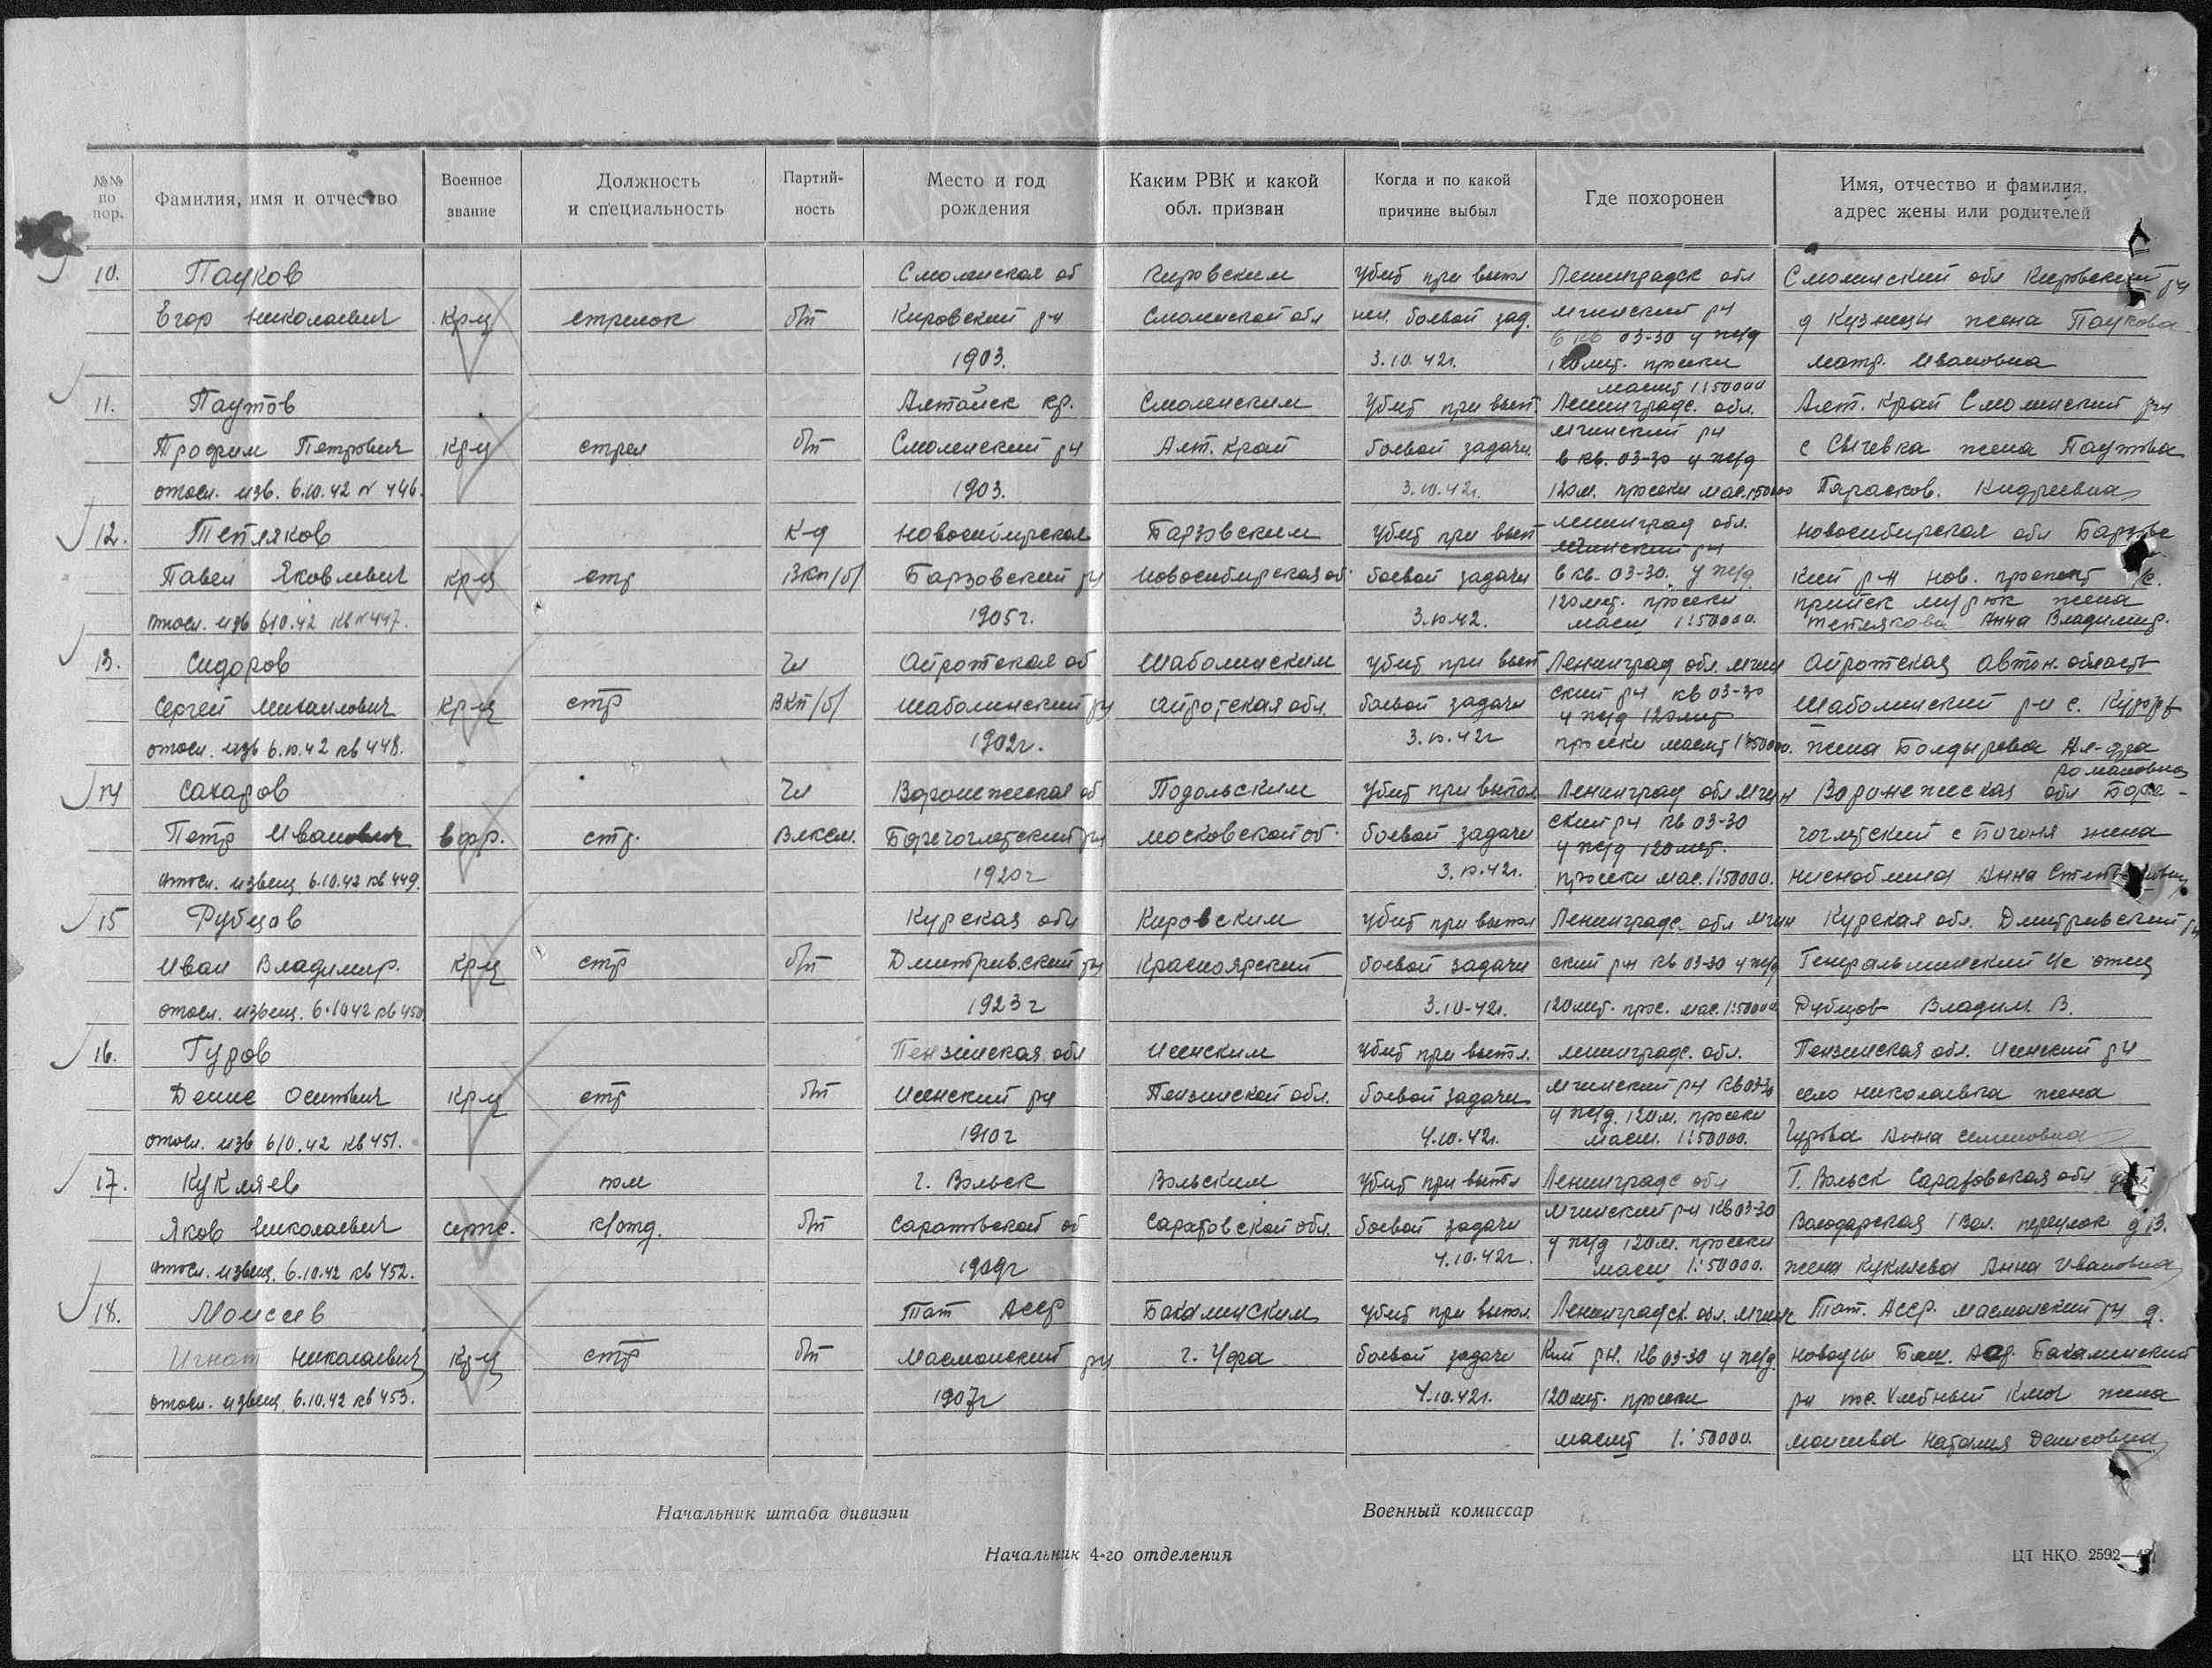 №№ по пор.
Фамилия, имя и отчество
Военное звание
Должность и специальность
Партийность
Место и год рождения
Каким РВК и какой обл. призван
Когда и по какой причине выбыл
Где похоронен
Имя, отчество и фамилия, адрес жены или родителей
10. Пауков Смоленская об Кировским Убит при выпол Ленинградск обл Смоленский обл Кировский рн
Егор Николаевич Кр-ц стрелок б/п Кировский рн Смоленской обл нен. боевой зад. Мгинский рн д Кузнецы жена Паукова
в кв 03-30 у ж/д
1903. 3.10.42г. 120 мет. просеки Матр. Ивановна
масшт 1:50000
11. Паутов Алтайск кр. Смоленским Убит при вып. Ленинградс. обл. Алт. край Смоленский рн
Трофим Петрович Кр-ц стрел б/п Смоленский рн Алт. край боевой задачи Мгинский рн с Сычевка жена Паутова
в кв. 03-30 у ж/д
отосл. изв. 6.10.42 N 446. 1903. 3.10.42г. 120м. просеки мас. 1:50000 Парасков.
12. Тепляков К-д Новосибирская Барзовским Убит при вып Ленинград обл. Новосибирская обл Барзовс
Мгинский рн
Павел Яковлевич кр-ц стр ВКП/б/ Барзовский рн Новосибирская об. боевой задачи в кв. 03-30. у ж/д кий р-н нов.
120 мет. просеки прииск жена
отосл. изв 6.10.42 кв N 447. 1905г. 3.10.42. масш 1:50000. Теплякова Анна Владимир.
13. Сидоров Чл Ойротская об Шабалинским Убит при вып Ленинград обл. Мгин Ойротская автон. область
Сергей Михайлович Кр-ц стр ВКП/б/ Шабалинский рн Ойротская обл. боевой задачи ский рн кв 03-30 Шабалинский р-н с.
у ж/д 120 мет
отосл. изв 6.10.42 кв 448. 1902г. 3.10.42г просеки масшт 1:50000. жена Болдырева Ал-дра
Романовна
14 Сахаров Чл Воронежская об Подольским Убит при выпол Ленинград обл Мгин Воронежская обл Бори-
Петр Иванович ефр. стр. ВЛКСМ. Борисоглебский рн Московской об. боевой задачи ский рн кв 03-30 соглебский с жена
у ж/д 120 мет.
отосл. извещ. 6.10.42 кв 449. 1920г 3.10.42г. просеки мас. 1:50000. Анна
15 Рубцов Курская обл Кировским Убит при выпол Ленинградс. обл Мгин Курская обл. Дмитривский рн
Иван Владимир. Кр-ц стр б/п Дмитривский рн Красноярский боевой задачи ский рн кв 03-30 у ж/д отец
отосл. извещ. 6.10.42 кв 450 1923г 3.10-42г. 120 мет. прос. мас. 1:50000 Рубцов Владим. В.
16. Гуров Пензенская обл Исенским Убит при выпол. Ленинградс. обл. Пензенская обл. Исенский рн
Денис Осипович Кр-ц стр б/п Исенский рн Пензенской обл. боевой задачи Мгинский рн кв 03-30 село Николаевка жена
у ж/д. 120м. просеки
отосл. изв 6/10.42 кв 451. 1910г 4.10.42г. масш. 1:50000. Гурова Анна Семеновна
17. Кукляев пом г. Вольск Вольским Убит при выпол Ленинградс обл Г. Вольск Саратовская обл
Яков Николаевич серж. к/отд. б/п Саратовской об Саратовской обл. боевой задачи Мгинский рн кв 03-30 Володарская переулок д 13.
у ж/д 120м. просеки
отосл. извещ. 6.10.42 кв 452. 1909г 4.10.42г. масш 1:50000. жена Кукляева Анна Ивановна
18. Моисеев Тат АССР Бакалинским Убит при выпол. Ленинградск. обл. Мгинс Тат. АССР. рн д.
Игнат Николаевич Кр-ц стр б/п рн г. Уфа боевой задачи кий рн. кв 03-30 у ж/д. Баш. АССР. Бакалинский
отосл. извещ. 6.10.42 кв 453. 1907г 4.10.42г. 120 мет. просеки рн Ключ жена
масшт 1:50000. Моисеева Наталия Денисовна
Начальник штаба дивизии Военный комиссар
Начальник 4-го отделения ЦТ НКО 2592—42